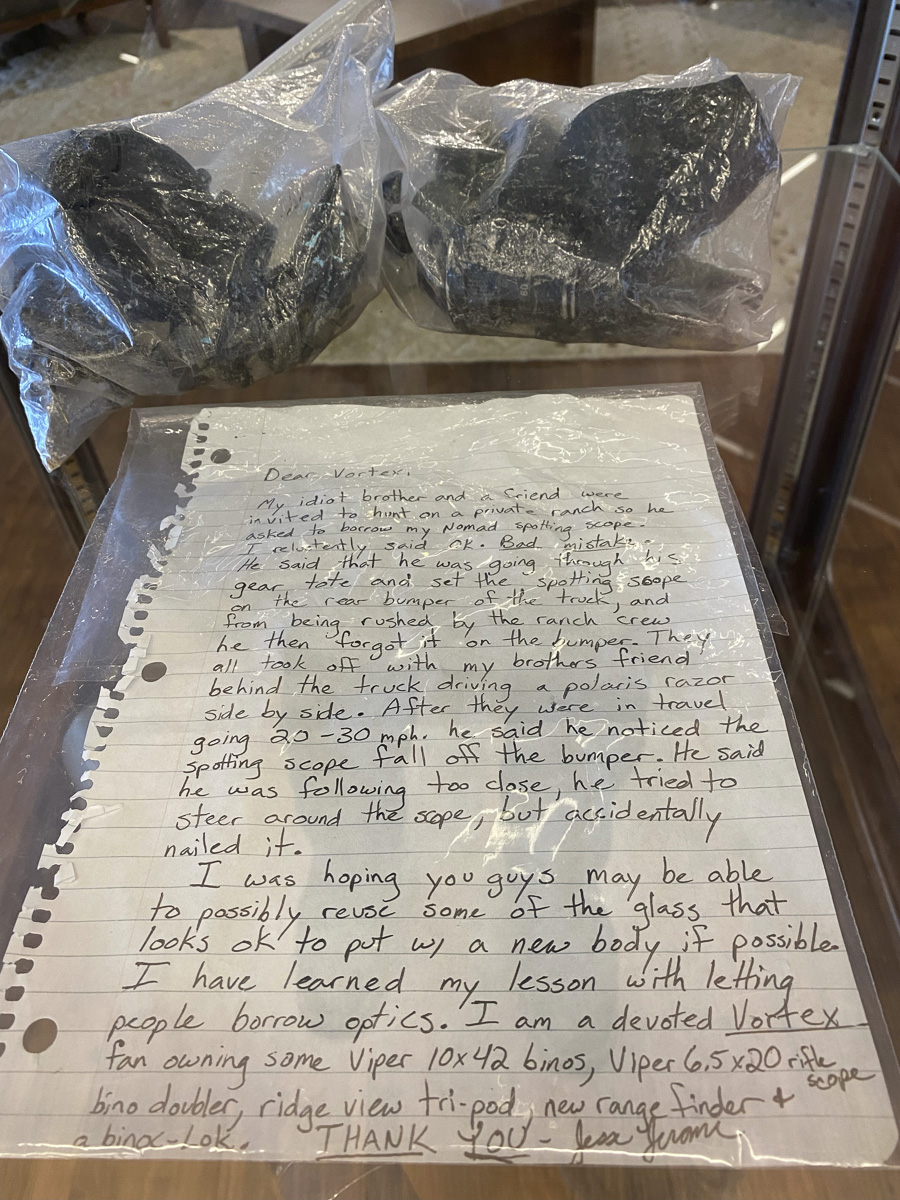 Dear Vortex:
My idiot brother and a friend were
invited to hunt on a private ranch so he
asked to borrow my Nomad spotting scope.
I reluctently said ok. Bad mistake.
He said that he was going through his
gear tote and set the spotting scope
on the rear bumper of the truck, and
from being rushed by the ranch crew
he then forgot it on the bumper. They
all took off with my brothers friend
behind the truck driving a polaris razor
side by side. After they were in travel
going 20-30 mph. he said he noticed the
spotting scope fall off the bumper. He said
he was following too close, he tried to
steer around the scope, but accidentally
nailed it.
I was hoping you guys may be able
to possibly reuse some of the glass that
looks ok to put w/ a new body if possible.
I have learned my lesson with letting
people borrow optics. I am a devoted Vortex
fan owning some Viper 10x42 binos, Viper 6.5x20 rifle
scope
bino doubler, ridge view tri-pod, new range finder &
a binoc-lok. THANK YOU -